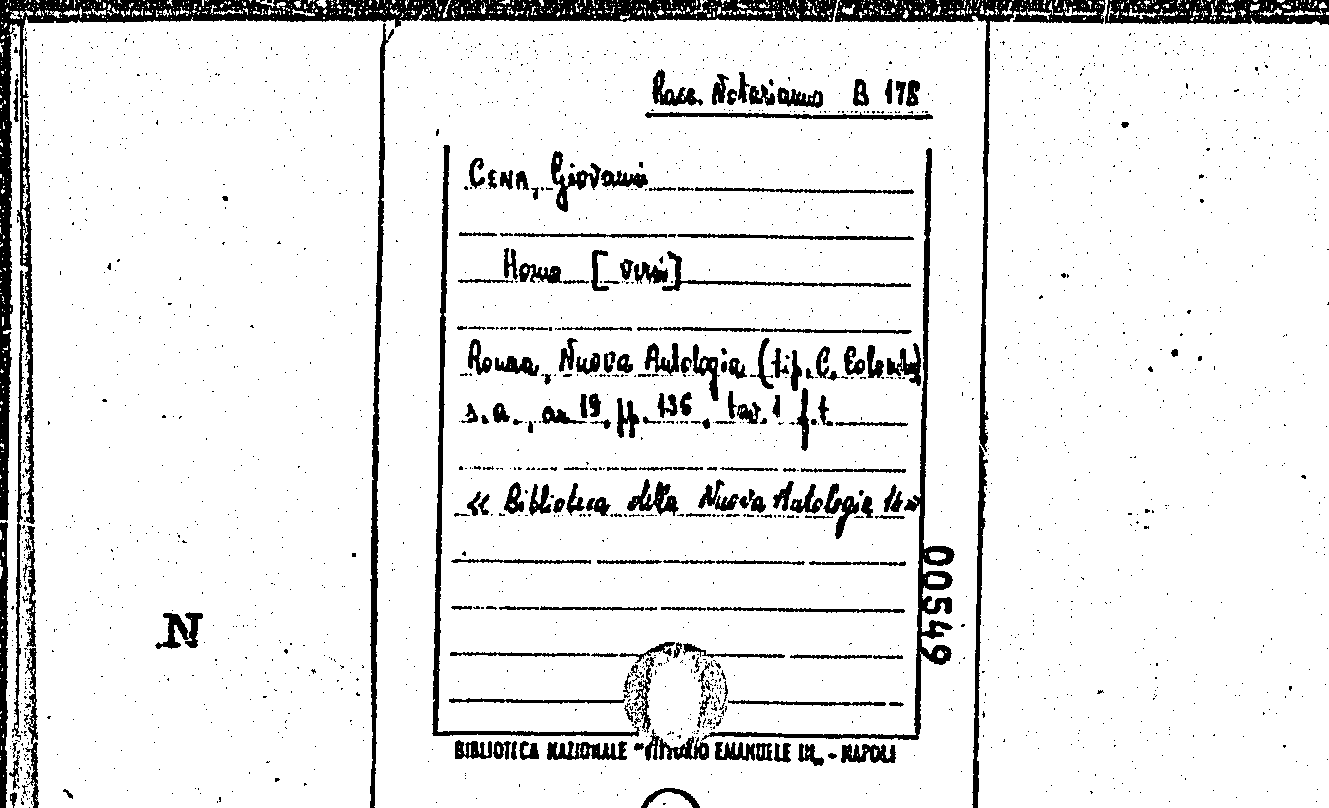 Racc. Notarianno B 178
CENA, Giovanni
Homo [versi]
Roma, Nuova Antologia (tip. C. Colombo)
s.a., in 19, pp. 136, tav. 1 f.t.
« Biblioteca della Nuova Antologia 16 »
00549
N
BIBLIOTECA NAZIONALE "VITTORIO EMANUELE III„ - NAPOLI